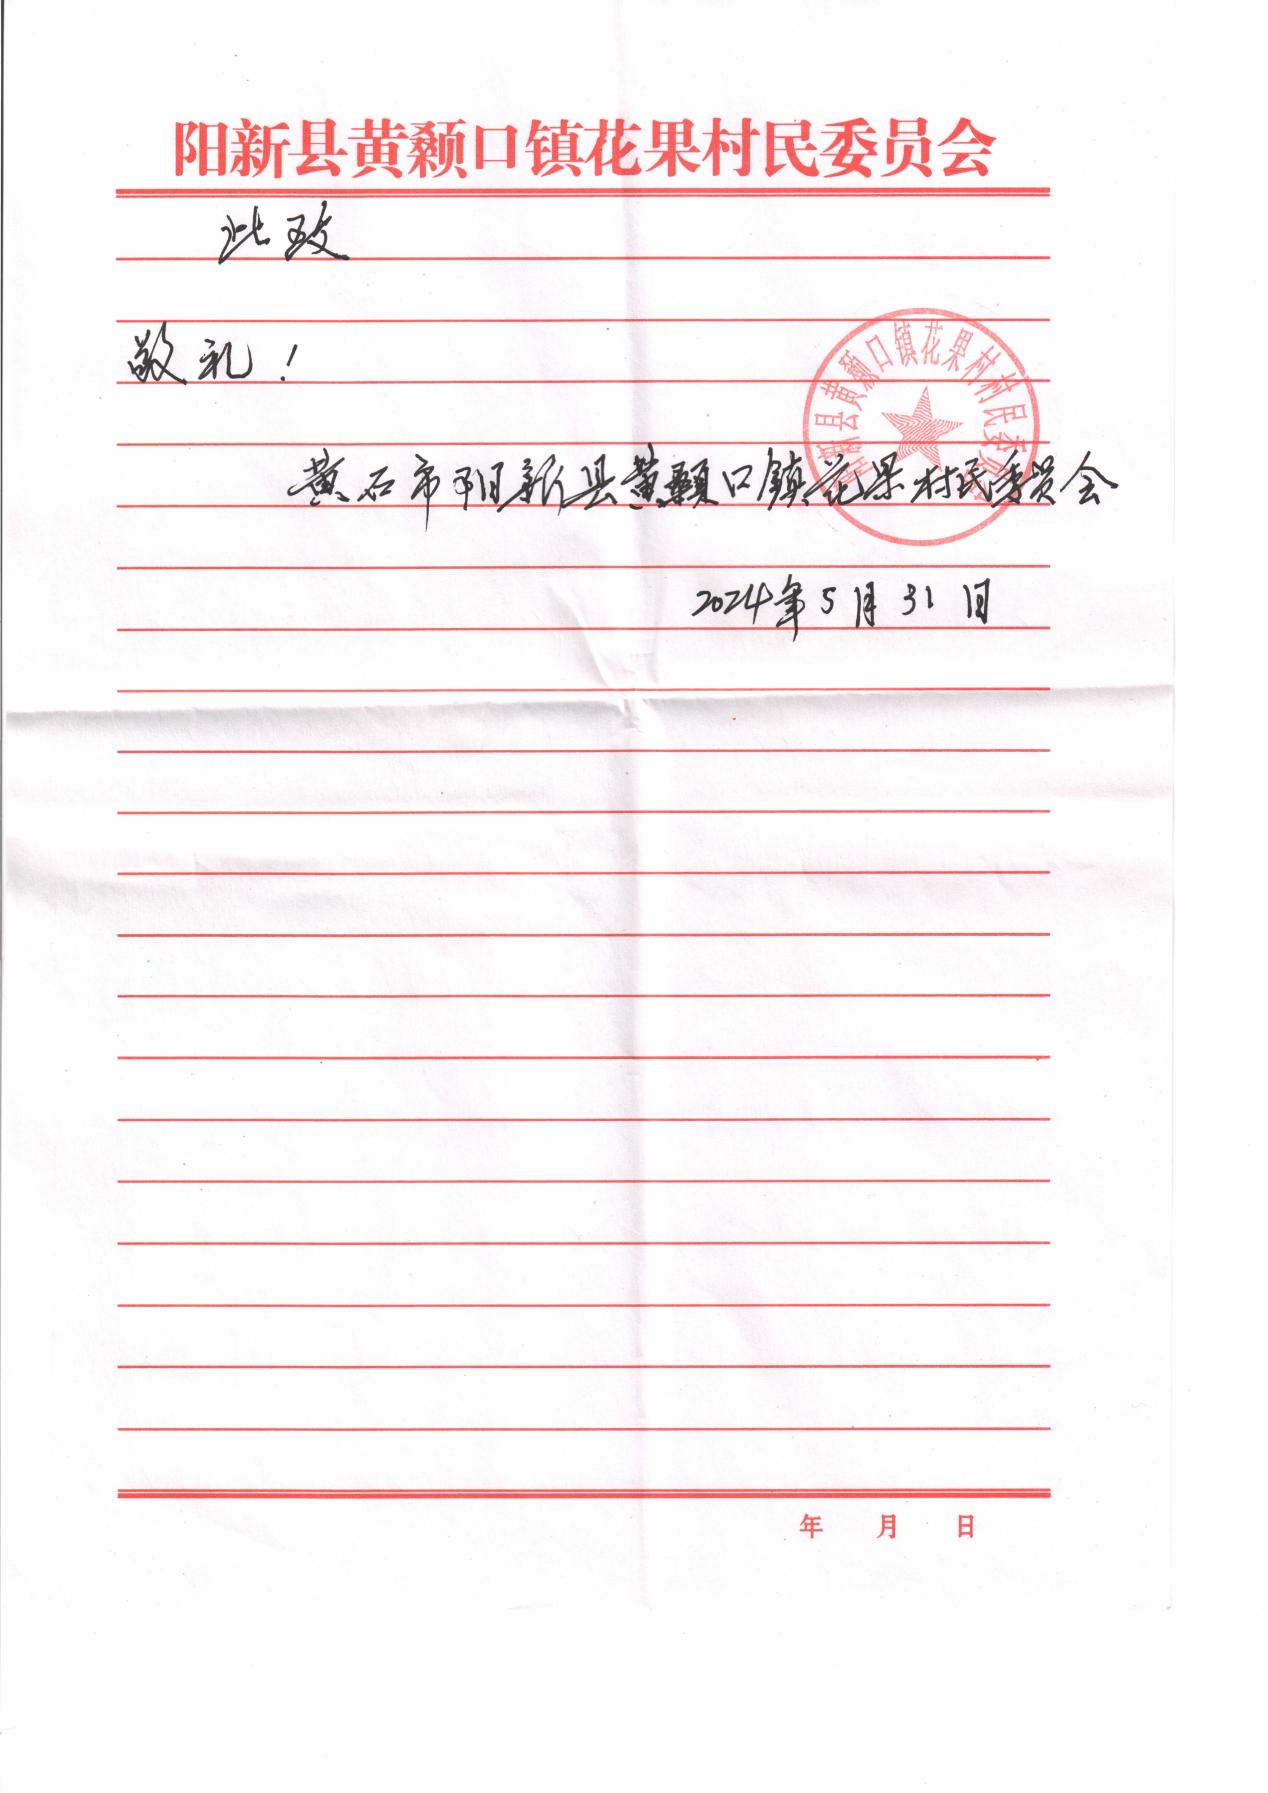 阳新县黄颡口镇花果村民委员会
此致
敬礼！
阳新县黄颡口镇花果村村民委员会
黄石市阳新县黄颡口镇花果村民委员会
2024年5月31日
年 月 日